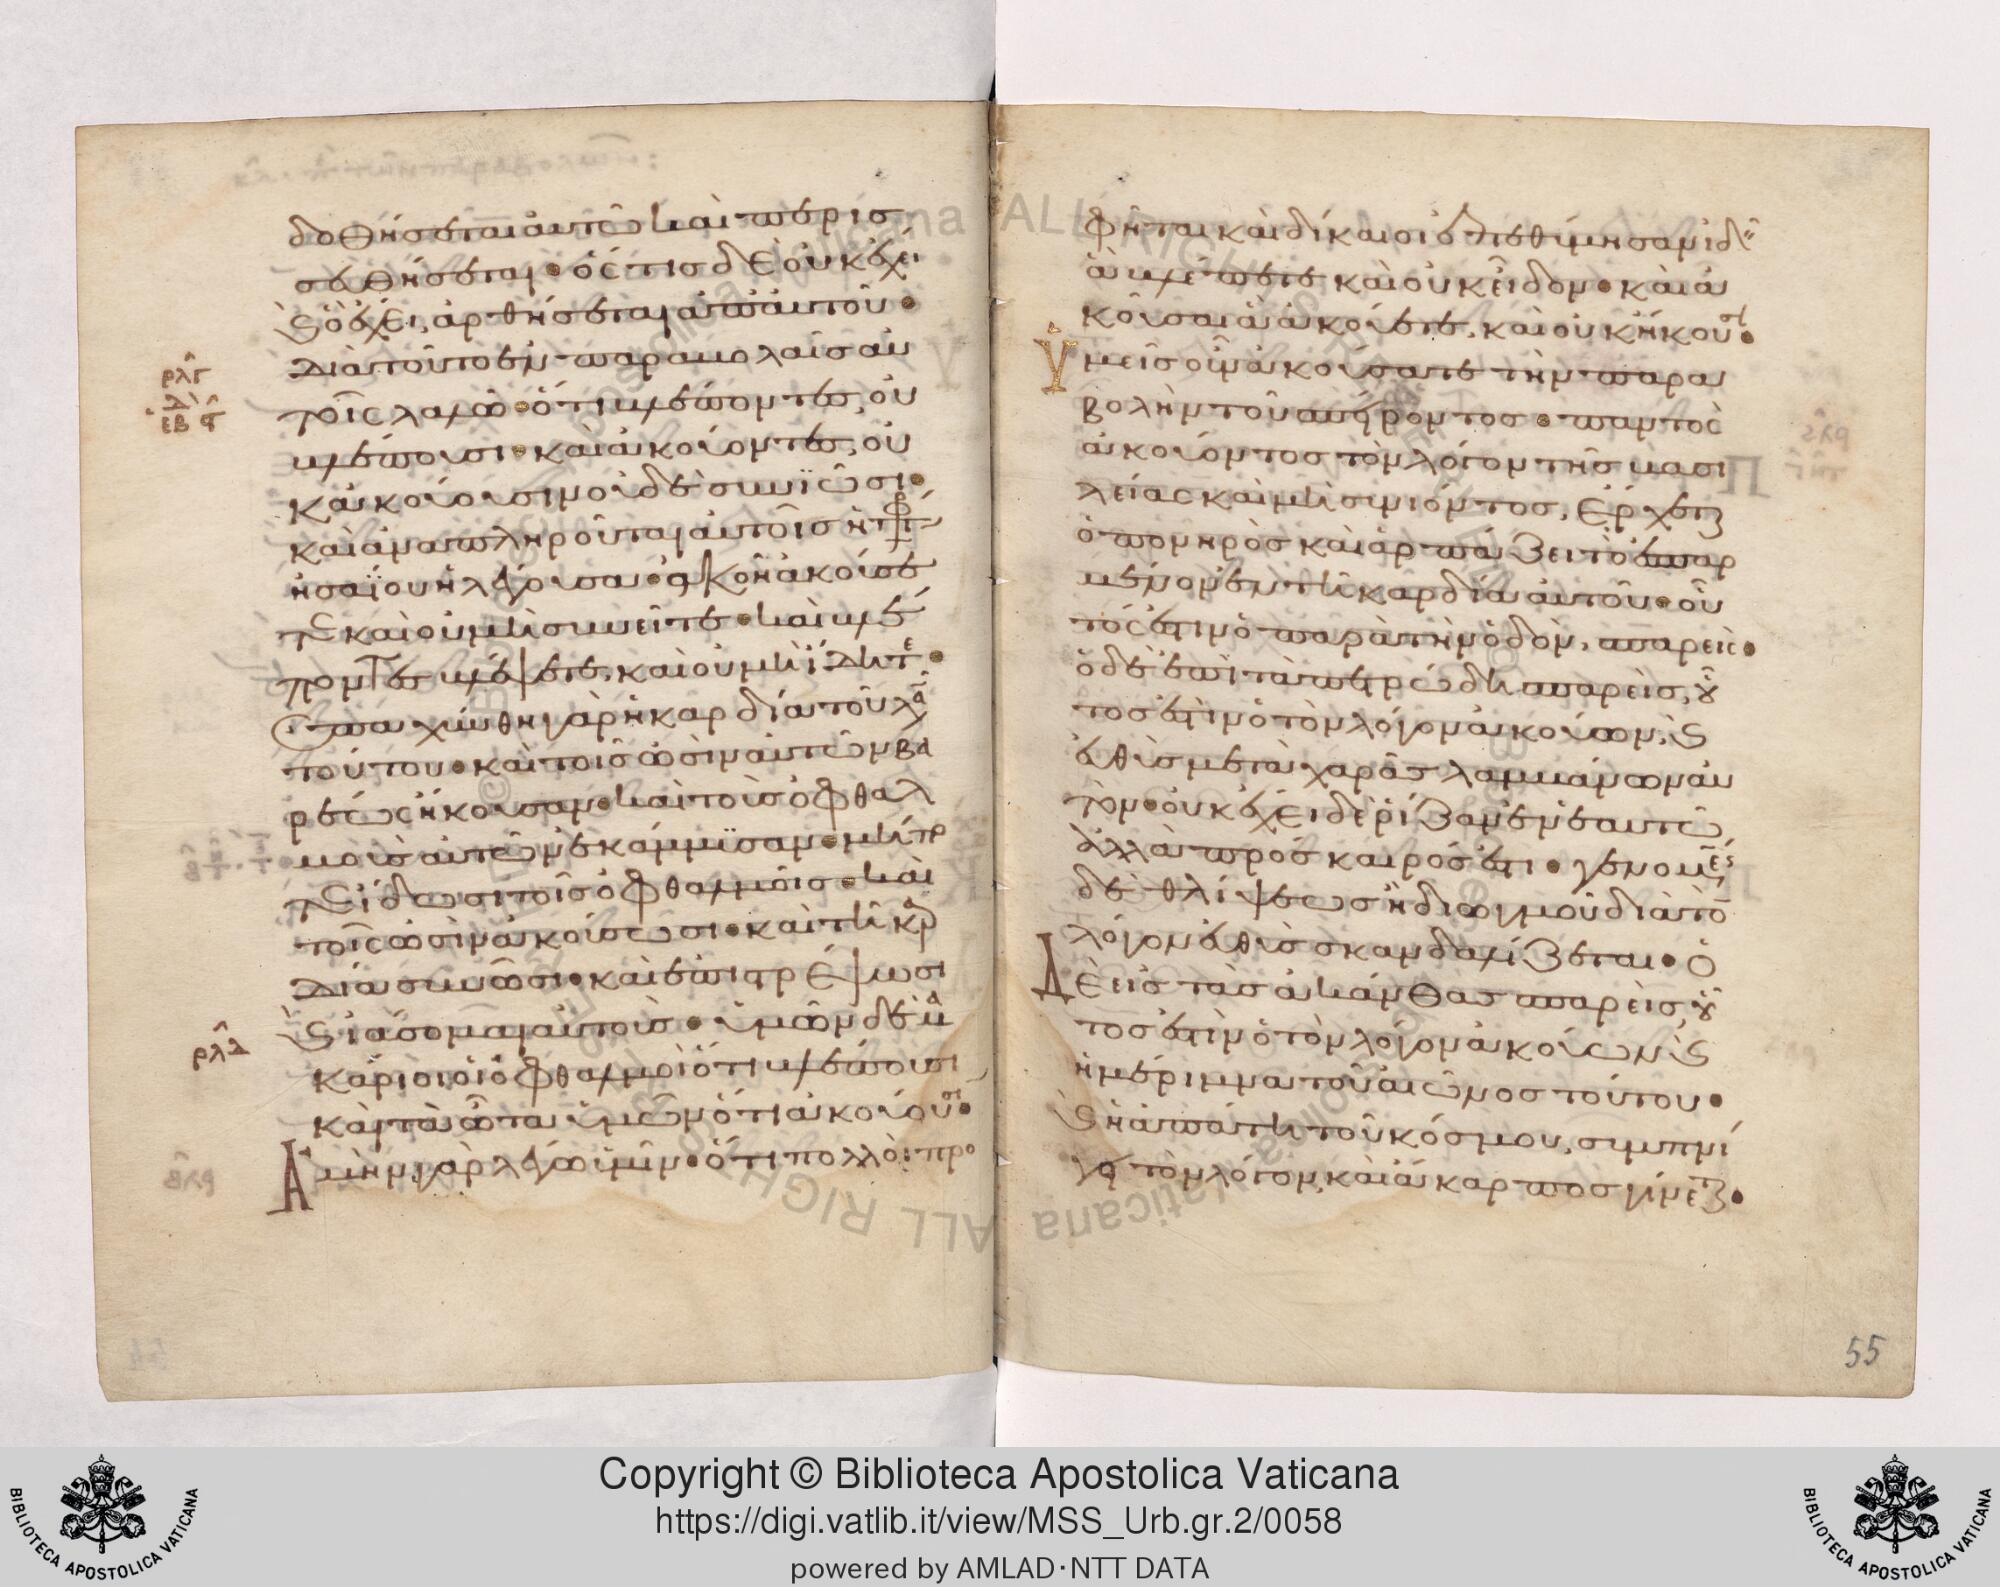 δοθήσεται αὐτῶ καὶ περισ
σευθήσεται· ὅς τις δὲ οὐκ ἔχει
ϗ ὃ ἔχει, ἀρθήσεται ἀπ' αὐτοῦ·
Διὰ τοῦτο ἐν παραβολαῖς αὐ
τοῖς λαλῶ· ὅτι βλέποντες, οὐ
βλέπουσι· καὶ ἀκούοντες, οὐ
κ ἀκούουσιν οὐδὲ συνϊῶσι·
καὶ ἀναπληροῦται αὐτοῖς ἡ πρφ
ἠσαΐου ἡ λέγουσα· ἀκοῆ ἀκούσε
τε καὶ οὐ μὴ συνεῖτε· καὶ βλέ
ποντες βλέψετε, καὶ οὐ μὴ ἴδητε·
ἐπαχύνθη γὰρ ἡ καρδία τοῦ λαοῦ
τούτου· καὶ τοῖς ὠσὶν αὐτῶν βα
ρέως ἤκουσαν· καὶ τοὺς ὀφθαλ
μοὺς αὐτῶν ἐκάμμϋσαν· μή πο
τε ἴδωσι τοῖς ὀφθαλμοῖς· καὶ
τοῖς ὠσὶν ἀκούσωσι· καὶ τῆ καρ
δία συνῶσι· καὶ ἐπιτρέψωσι
ϗ ἰάσομαι αὐτούς· ὑμῶν δὲ μα
κάριοι οἱ ὀφθαλμοὶ ὅτι βλέπουσι
καὶ τὰ ὦτα ὑμῶν ὅτι ἀκούουσι·
Ἀμὴν γὰρ λέγω ὑμῖν· ὅτι πολλοὶ προ
ρλγ
ρλδ
φῆται καὶ δίκαιοι ἐπεθύμησαν ἰδεῖν
ἃ βλέπετε καὶ οὐκ εἶδον· καὶ ἀ
κοῦσαι ἃ ἀκούετε, καὶ οὐκ ἤκουσαν·
Ὑμεῖς οὖν ἀκούσατε τὴν παρα
βολὴν τοῦ σπείροντος· παντὸς
ἀκούοντος τὸν λόγον τῆς βασι
λείας καὶ μὴ συνιόντος, ἔρχεται
ὁ πονηρὸς καὶ ἁρπάζει τὸ ἐσπαρ
μένον ἐν τῆ καρδία αὐτοῦ· οὗ
τός ἐστιν ὁ παρὰ τὴν ὁδόν, σπαρείς·
ὁ δὲ ἐπὶ τὰ πετρώδη σπαρεὶς, οὗ
τός ἐστιν ὁ τὸν λόγον ἀκούων, ϗ
εὐθὺς μετὰ χαρᾶς λαμβάνων αὐ
τόν· οὐκ ἔχει δὲ ῥίζαν ἐν ἑαυτῶ
ἀλλὰ πρόσκαιρός ἐστι· γενομένης
δὲ θλίψεως ἢ διωγμοῦ διὰ τὸν
λόγον εὐθὺς σκανδαλίζεται· Ὁ
Δὲ εἰς τὰς ἀκάνθας σπαρεὶς, οὗ
τός ἐστὶν ὁ τὸν λόγον ἀκούων, ϗ
ἡ μέριμνα τοῦ αἰῶνος τούτου·
ϗ ἡ ἀπάτη τοῦ κόσμου, συμπνί
γει τὸν λόγον, καὶ ἄκαρπος γίνεται·
55
BIBLIOTECA APOSTOLICA VATICANA
Copyright © Biblioteca Apostolica Vaticana
https://digi.vatlib.it/view/MSS_Urb.gr.2/0058
powered by AMLAD·NTT DATA
BIBLIOTECA APOSTOLICA VATICANA